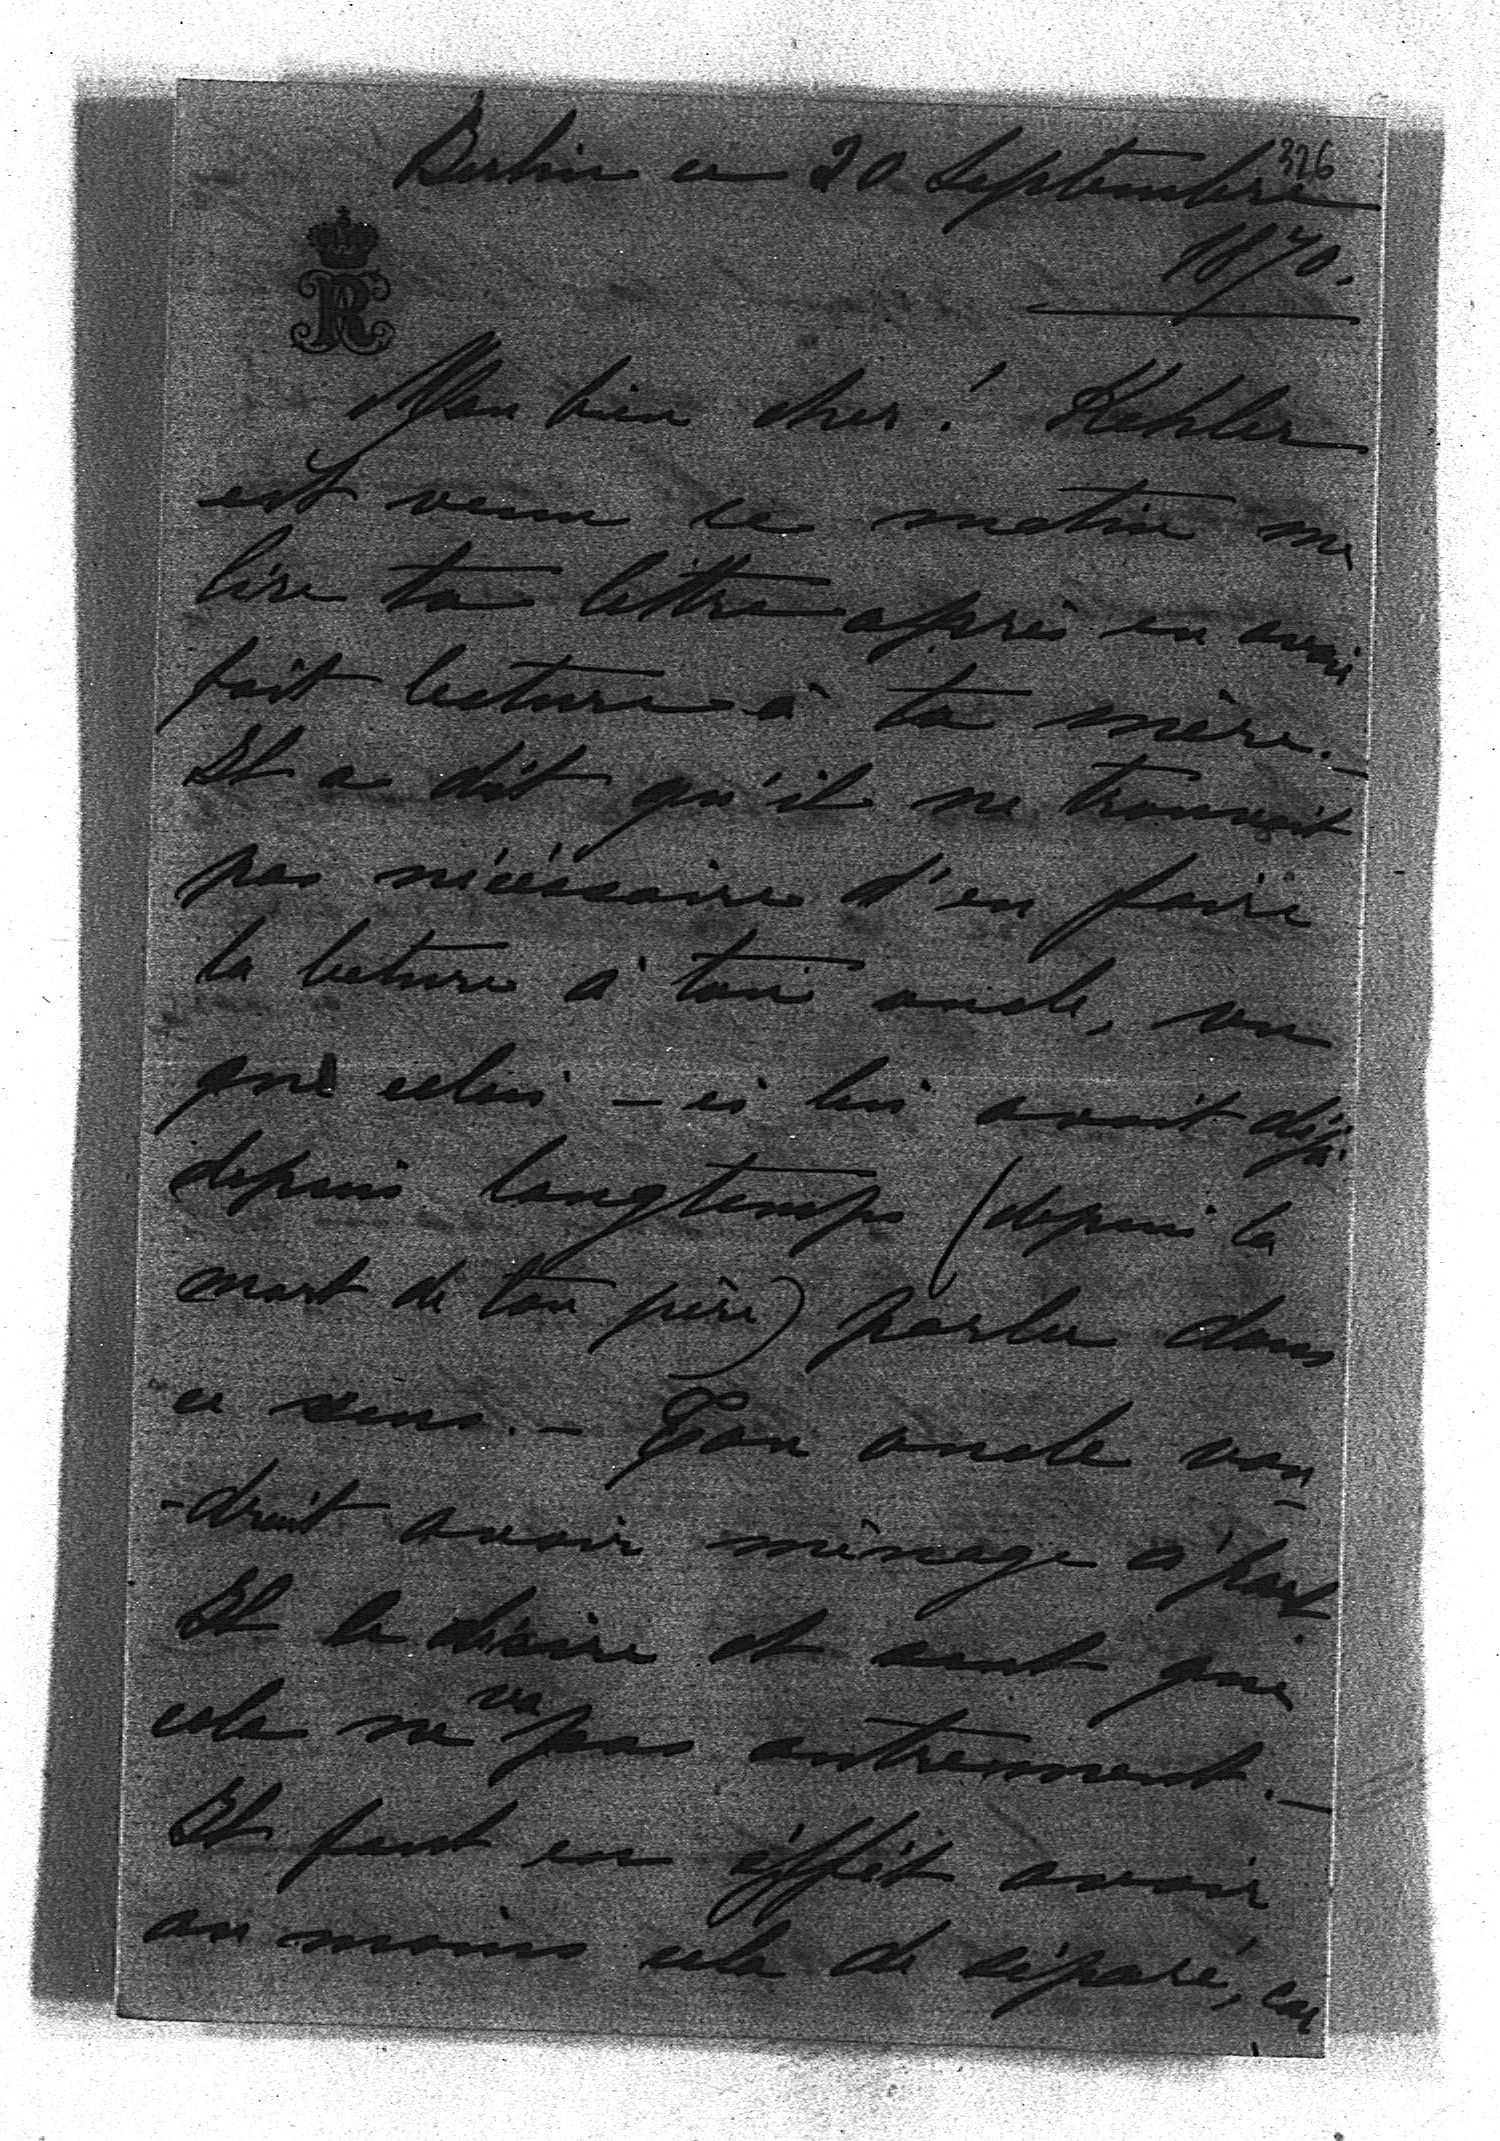 326
Berlin ce 20 Septembre
1870.
R
Mon bien cher! Kehler
est venu ce matin me
lire ta lettre après en avoir
fait lecture à ta mère. –
Il a dit qu'il ne trouvait
pas nécéssaire d'en faire
la lecture à ton oncle, vu
que celui – ci lui avait déjà
depuis longtemps (depuis la
mort de ton père) parler dans
ce sens. – Ton oncle vou-
-drait avoir ménage à part.
Il le désire et sent que
cela ne va pas autrement. –
Il faut en éffèt avoir
au moins cela de séparé, car